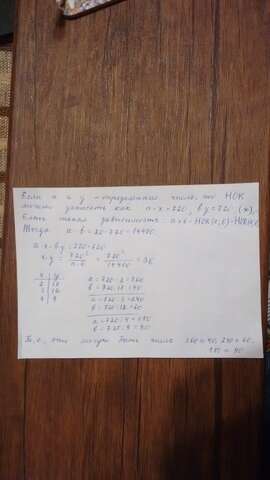 Если x и y - определенные числа, то НОК
можно записать как a·x=720, b·y=720 (*).
Есть такая зависимость a·b=НОК(a;b)·НОД(a;b)
Тогда a·b=20·720=14400.
a·x·b·y=720·720
x·y=720²/a·b=720²/14400=36
x | y
2 | 18
3 | 12
4 | 9
a=720:2=360
b=720:18=40
a=720:3=240
b=720:12=60
a=720:4=180
b=720:9=80
Т.е. это могут быть числа 360 и 40, 240 и 60,